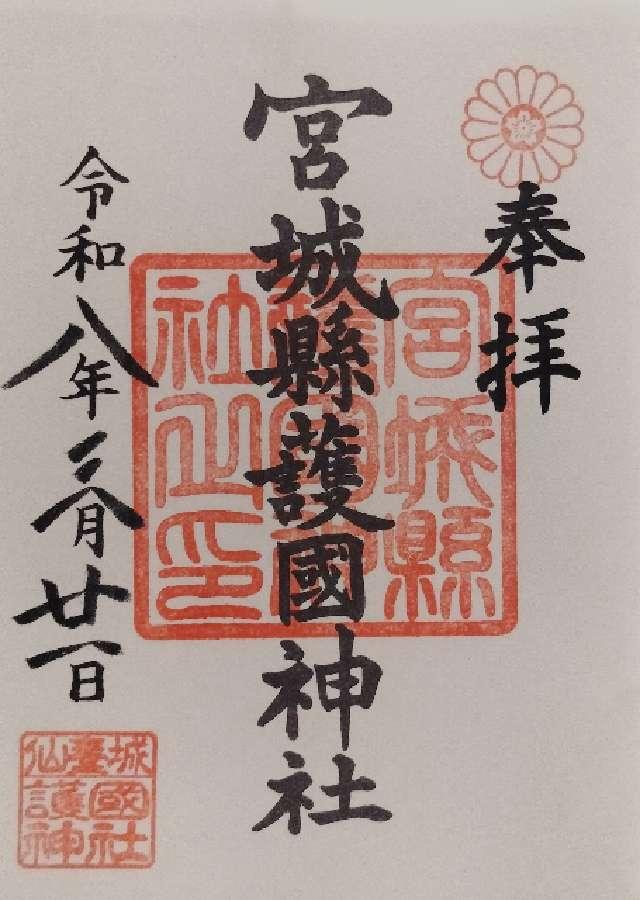 奉拝
宮城縣護國神社
令和八年三月廿一日
宮城縣
社之印
仙臺城
護國
神社